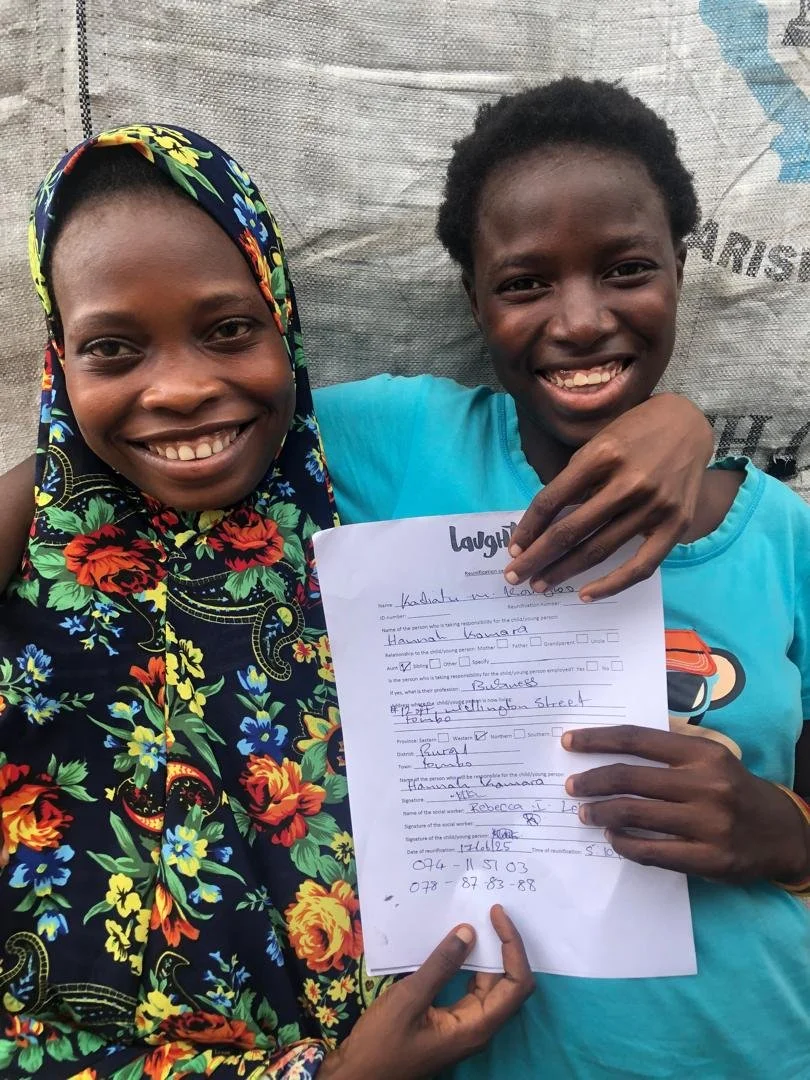 ARISH
Laught
Reunification
Name: Kadiatu M. Kamara
ID number: Reunification number:
Name of the person who is taking responsibility for the child/young person:
Hannah Kamara
Relationship to the child/young person: Mother Father Grandparent Uncle
Aunt Sibling Other Specify
Is the person who is taking responsibility for the child/young person employed? Yes No
If yes, what is their profession: Business
Address where the child/young person is now living:
Wellington Street
Tombo
Province: Eastern Western Northern Southern
District: Rural
Town: Tombo
Name of the person who will be responsible for the child/young person:
Hannah Kamara
Signature:
Name of the social worker: Rebecca I.
Signature of the social worker:
Signature of the child/young person:
Date of reunification: 17/01/25 Time of reunification:
074 - 11 51 03
078 - 87-83-88